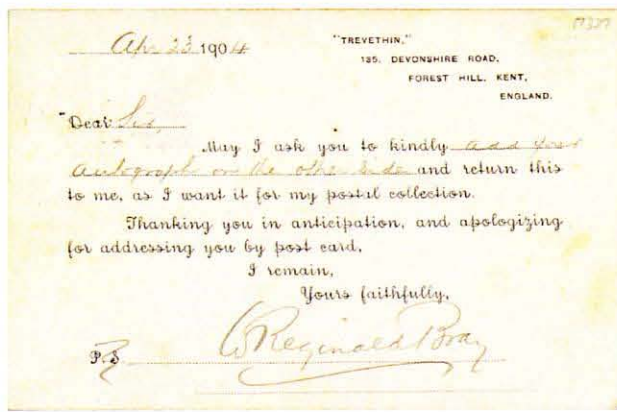 17327
Apr 23 1904
"TREVETHIN,"
135, DEVONSHIRE ROAD,
FOREST HILL, KENT,
ENGLAND.
Dear Sir,
May I ask you to kindly add your
autograph on the other side and return this
to me, as I want it for my postal collection.
Thanking you in anticipation, and apologizing
for addressing you by post card,
I remain,
Yours faithfully,
W Reginald Bray
P.S.